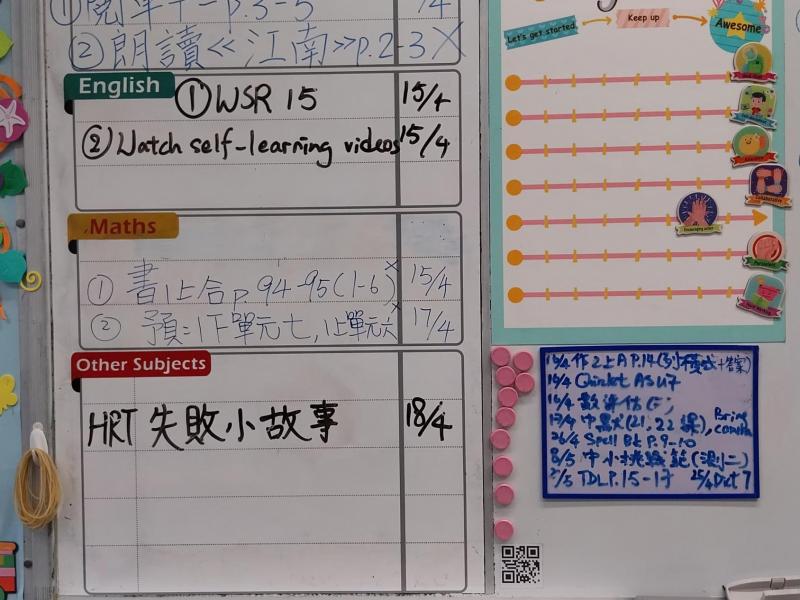 ①閱單十一p.3-5 /4
②朗讀《江南》p.2-3 X
English
①WSR 15 15/4
②Watch self-learning videos 15/4
Maths
①書1上合p.94-95(1-6) 15/4
②預=1下單元七,1上單元六 17/4
Other Subjects
HRT 失敗小故事 18/4
Let's get started
Keep up
Awesome
Collaborative
Encouraging
作2上A P.14(列橫式+答案)
Quizlet AS U7
數評估
中默(21, 22課), Bring
26/4 Spell P.9-10
8/5 中小挑
TDL P.15-17 25/4 Dict 7